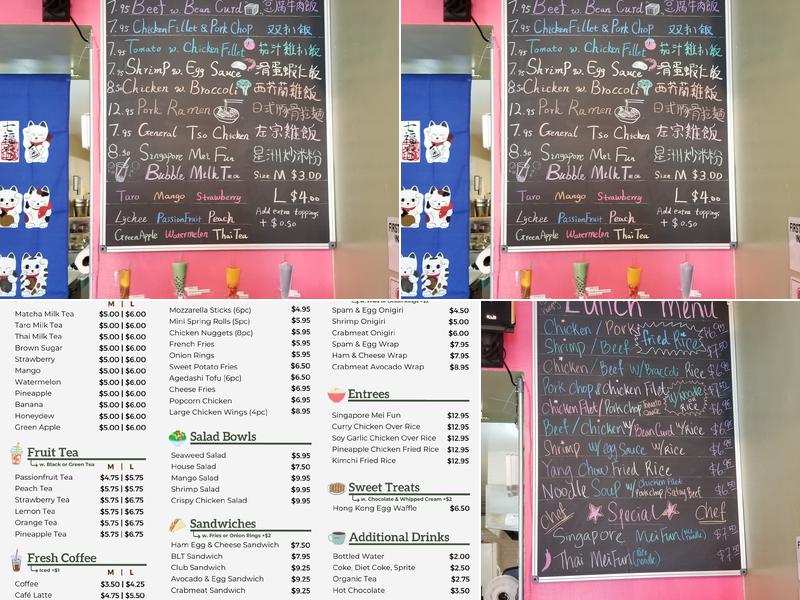 7.95 Beef w. Bean Curd 豆腐牛肉飯
7.95 Chicken Fillet & Pork Chop 双扒飯
7.95 Tomato w. Chicken Fillet 茄汁雞扒飯
7.95 Shrimp w. Egg Sauce 滑蛋蝦仁飯
8.50 Chicken w. Broccoli 西芥蘭雞飯
12.95 Pork Ramen 日式豚骨拉麵
7.95 General Tso Chicken 左宗雞飯
8.50 Singapore Mei Fun 星洲炒米粉
Bubble Milk Tea Size M $3.00
Taro Mango Strawberry L $4.00
Lychee Passion Fruit Peach Add extra toppings
+ $0.50
Green Apple Watermelon Thai Tea
FIRST
7.95 Beef w. Bean Curd 豆腐牛肉飯
7.95 Chicken Fillet & Pork Chop 双扒飯
7.95 Tomato w. Chicken Fillet 茄汁雞扒飯
7.95 Shrimp w. Egg Sauce 滑蛋蝦仁飯
8.50 Chicken w. Broccoli 西芥蘭雞飯
12.95 Pork Ramen 日式豚骨拉麵
7.95 General Tso Chicken 左宗雞飯
8.50 Singapore Mei Fun 星洲炒米粉
Bubble Milk Tea Size M $3.00
Taro Mango Strawberry L $4.00
Lychee Passion Fruit Peach Add extra toppings
+ $0.50
Green Apple Watermelon Thai Tea
FIRST
M | L
Matcha Milk Tea $5.00 | $6.00
Taro Milk Tea $5.00 | $6.00
Thai Milk Tea $5.00 | $6.00
Brown Sugar $5.00 | $6.00
Strawberry $5.00 | $6.00
Mango $5.00 | $6.00
Watermelon $5.00 | $6.00
Pineapple $5.00 | $6.00
Banana $5.00 | $6.00
Honeydew $5.00 | $6.00
Green Apple $5.00 | $6.00
Fruit Tea
w. Black or Green Tea M | L
Passionfruit Tea $4.75 | $5.75
Peach Tea $5.75 | $6.75
Strawberry Tea $5.75 | $6.75
Lemon Tea $5.75 | $6.75
Orange Tea $5.75 | $6.75
Pineapple Tea $5.75 | $6.75
Fresh Coffee
Iced +$1 M | L
Coffee $3.50 | $4.25
Café Latte $4.75 | $5.50
Mozzarella Sticks (6pc) $4.95
Mini Spring Rolls (5pc) $5.95
Chicken Nuggets (8pc) $5.95
French Fries $5.95
Onion Rings $5.95
Sweet Potato Fries $6.50
Agedashi Tofu (6pc) $6.50
Cheese Fries $6.95
Popcorn Chicken $6.95
Large Chicken Wings (4pc) $8.95
Salad Bowls
Seaweed Salad $5.95
House Salad $7.50
Mango Salad $9.95
Shrimp Salad $9.95
Crispy Chicken Salad $9.95
Sandwiches
w. Fries or Onion Rings +$2
Ham Egg & Cheese Sandwich $7.50
BLT Sandwich $7.95
Club Sandwich $9.25
Avocado & Egg Sandwich $9.25
Crabmeat Sandwich $9.25
Spam & Egg Onigiri $4.50
Shrimp Onigiri $5.00
Crabmeat Onigiri $6.00
Spam & Egg Wrap $7.95
Ham & Cheese Wrap $7.95
Crabmeat Avocado Wrap $8.95
Entrees
Singapore Mei Fun $12.95
Curry Chicken Over Rice $12.95
Soy Garlic Chicken Over Rice $12.95
Pineapple Chicken Fried Rice $12.95
Kimchi Fried Rice $12.95
Sweet Treats
w. Chocolate & Whipped Cream +$2
Hong Kong Egg Waffle $6.50
Additional Drinks
Bottled Water $2.00
Coke, Diet Coke, Sprite $2.50
Organic Tea $2.75
Hot Chocolate $3.50
Lunch Menu
Chicken / Pork
Shrimp / Beef Fried Rice
Chicken / Beef w/ Broccoli Rice
Pork Chop & Chicken Filet w/ Rice
Chicken Filet / Pork chop Tomato Sauce
Beef / Chicken w/ Bean Curd w/ Rice
Shrimp w/ egg sauce w/ Rice
Yang Chow Fried Rice
Noodle Soup w/ Chicken Filet
Pork chop / Satay Beef
chef Special chef
Singapore Mei Fun (rice noodle)
Thai Mei Fun (rice noodle)